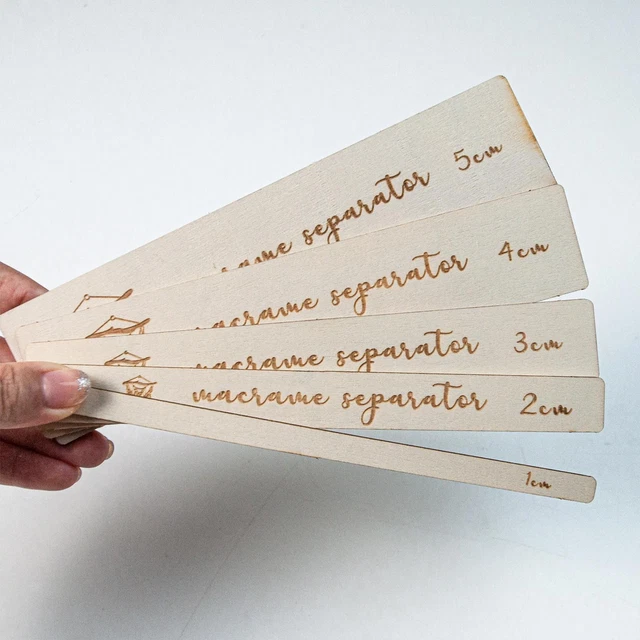 macrame separator 5cm
macrame separator 4cm
macrame separator 3cm
macrame separator 2cm
1cm